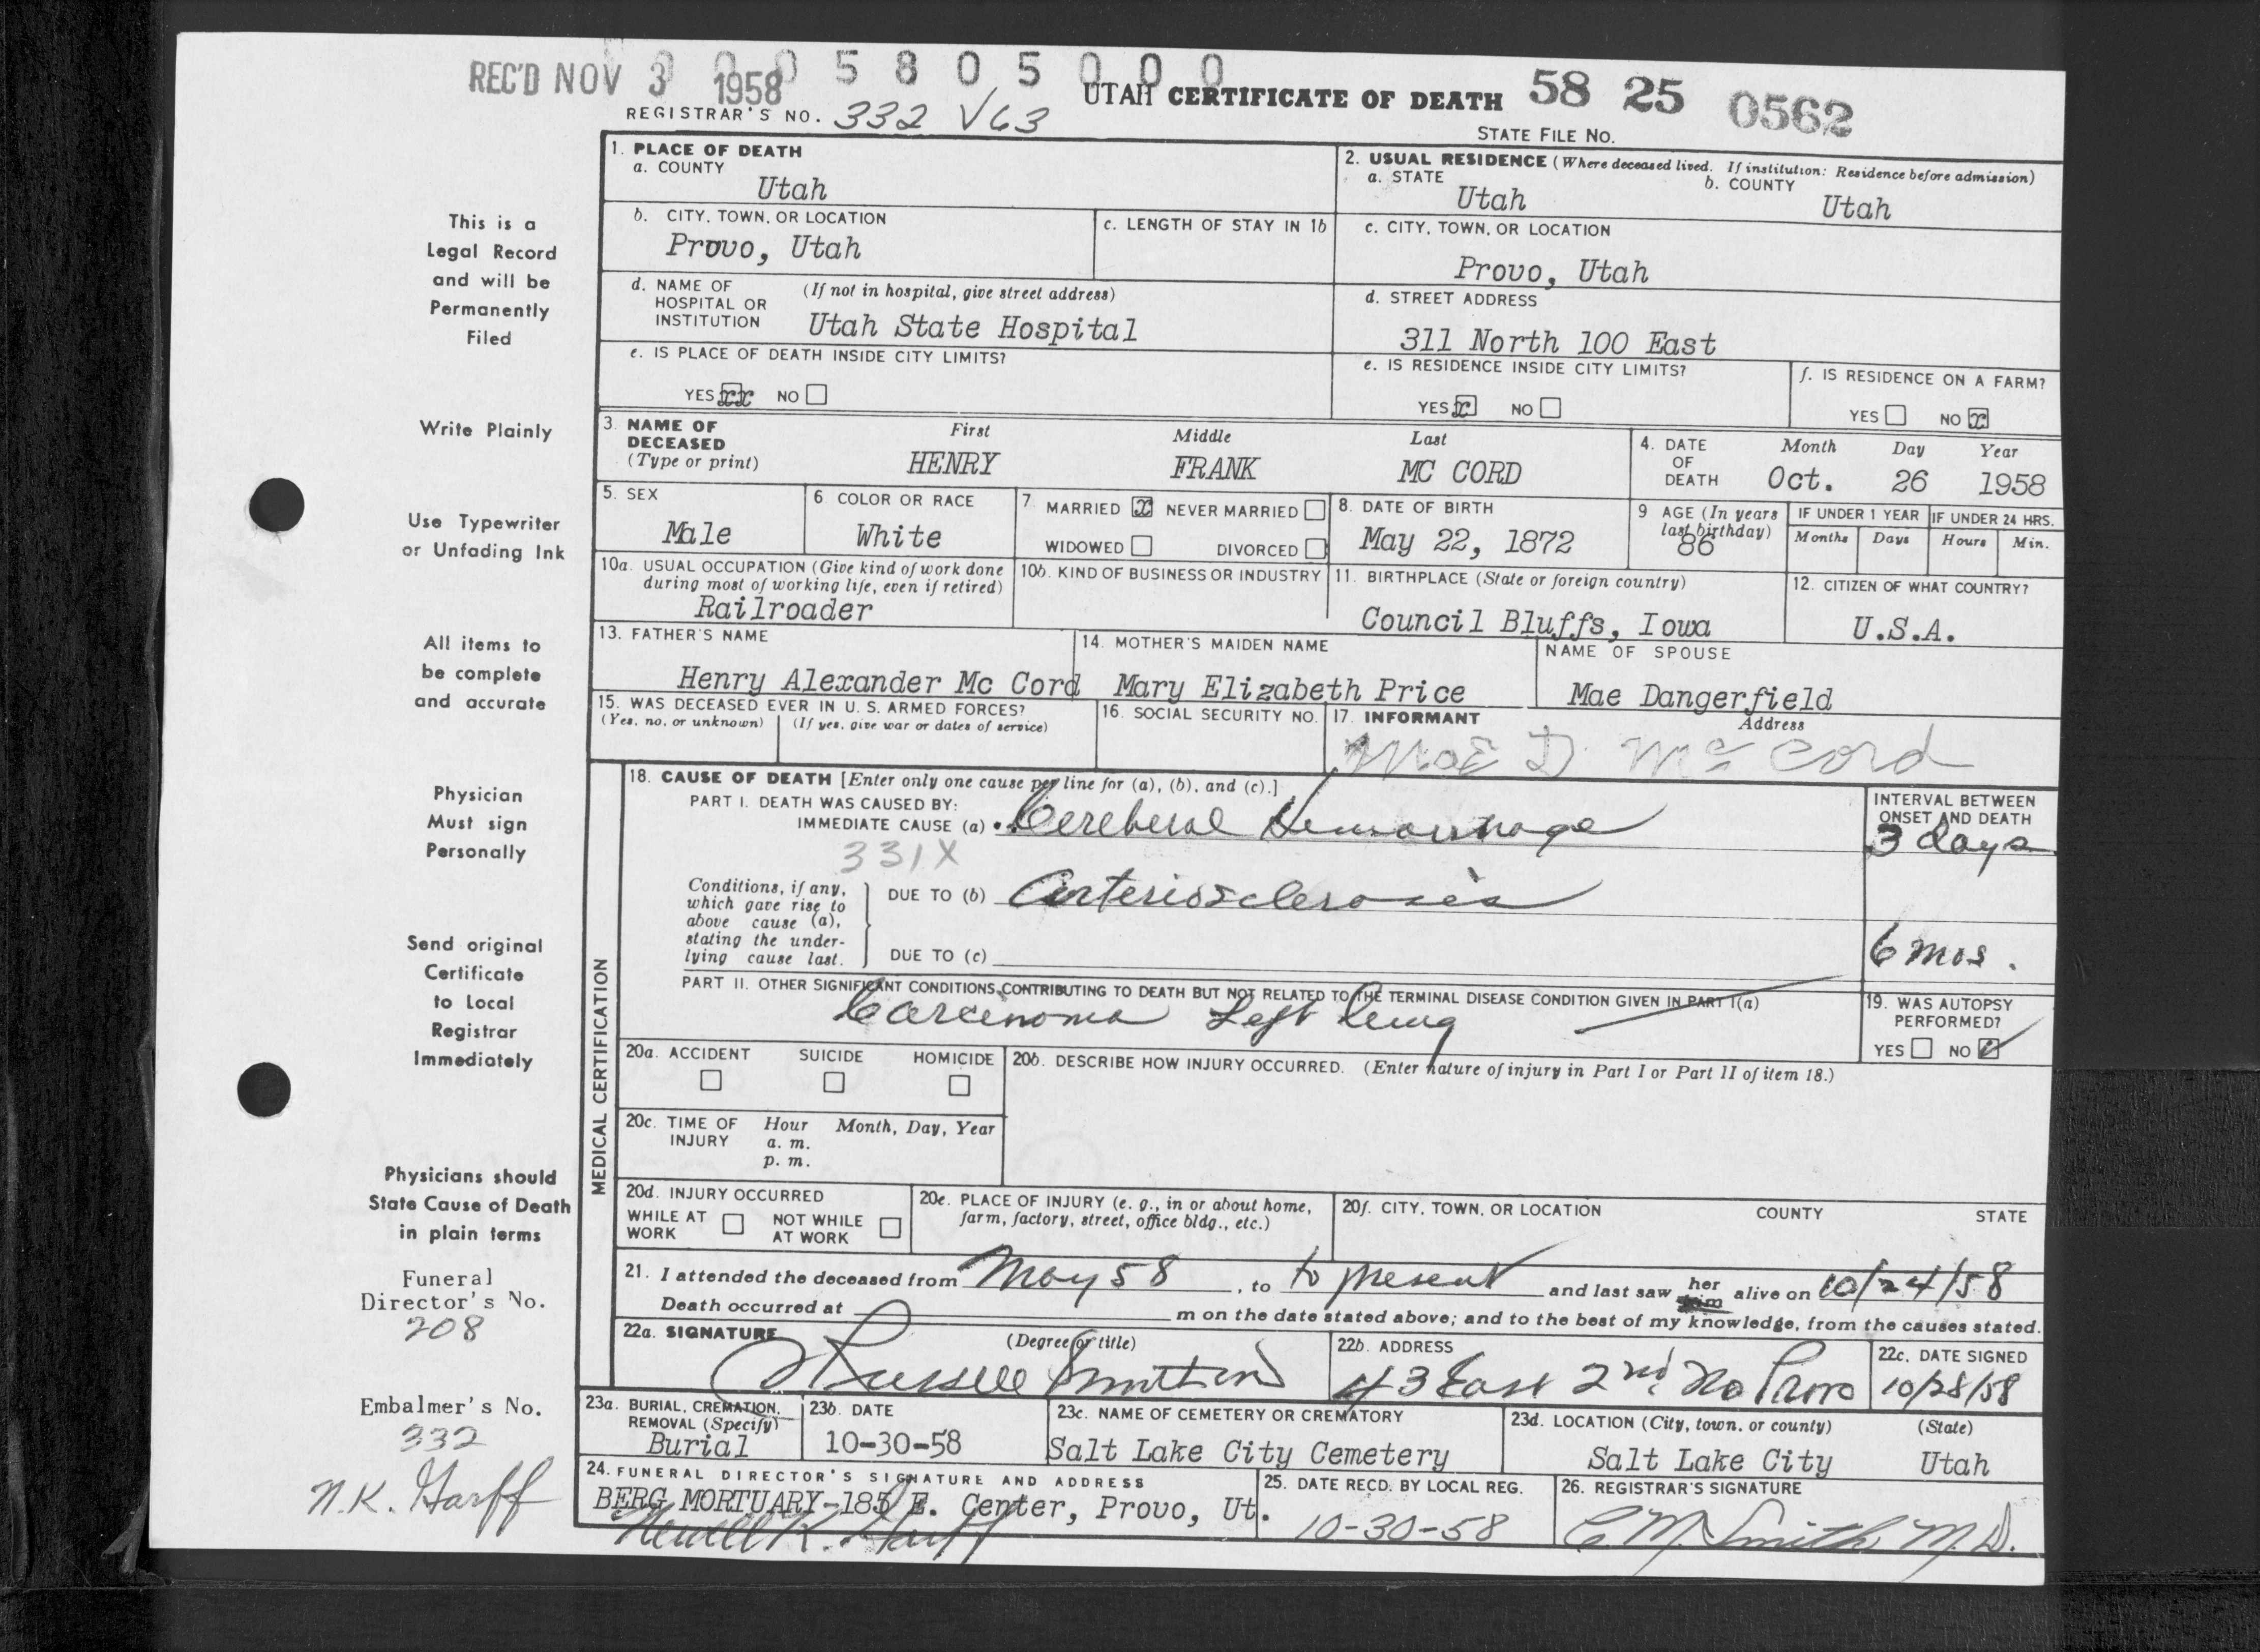 REC'D NOV 3 1958
0 0 0 5 8 0 5 0 0 0
UTAH CERTIFICATE OF DEATH 58 25 0562
REGISTRAR'S NO. 332 V63
STATE FILE NO.
This is a
Legal Record
and will be
Permanently
Filed
Write Plainly
Use Typewriter
or Unfading Ink
All items to
be complete
and accurate
Physician
Must sign
Personally
Send original
Certificate
to Local
Registrar
Immediately
Physicians should
State Cause of Death
in plain terms
Funeral
Director's No.
208
Embalmer's No.
332
N.K. Harff
1. PLACE OF DEATH
a. COUNTY
Utah
2. USUAL RESIDENCE (Where deceased lived. If institution: Residence before admission)
a. STATE
Utah
b. COUNTY
Utah
b. CITY, TOWN, OR LOCATION
Provo, Utah
c. LENGTH OF STAY IN 1b
c. CITY, TOWN, OR LOCATION
Provo, Utah
d. NAME OF HOSPITAL OR INSTITUTION (If not in hospital, give street address)
Utah State Hospital
d. STREET ADDRESS
311 North 100 East
e. IS PLACE OF DEATH INSIDE CITY LIMITS?
YES xx NO
e. IS RESIDENCE INSIDE CITY LIMITS?
YES x NO
f. IS RESIDENCE ON A FARM?
YES NO x
3. NAME OF DECEASED (Type or print)
First Middle Last
HENRY FRANK MC CORD
4. DATE OF DEATH
Month Day Year
Oct. 26 1958
5. SEX
Male
6 COLOR OR RACE
White
7. MARRIED x NEVER MARRIED
WIDOWED DIVORCED
8. DATE OF BIRTH
May 22, 1872
9 AGE (In years last birthday)
86
IF UNDER 1 YEAR
Months Days
IF UNDER 24 HRS.
Hours Min.
10a. USUAL OCCUPATION (Give kind of work done during most of working life, even if retired)
Railroader
10b. KIND OF BUSINESS OR INDUSTRY
11. BIRTHPLACE (State or foreign country)
Council Bluffs, Iowa
12. CITIZEN OF WHAT COUNTRY?
U.S.A.
13. FATHER'S NAME
Henry Alexander Mc Cord
14. MOTHER'S MAIDEN NAME
Mary Elizabeth Price
NAME OF SPOUSE
Mae Dangerfield
15. WAS DECEASED EVER IN U. S. ARMED FORCES?
(Yes, no, or unknown) (If yes, give war or dates of service)
16. SOCIAL SECURITY NO.
17. INFORMANT Address
Mae D. McCord
MEDICAL CERTIFICATION
18. CAUSE OF DEATH [Enter only one cause per line for (a), (b), and (c).]
PART I. DEATH WAS CAUSED BY:
IMMEDIATE CAUSE (a) Cerebral Hemorrhage
331X
INTERVAL BETWEEN ONSET AND DEATH
3 days
Conditions, if any, which gave rise to above cause (a), stating the underlying cause last.
DUE TO (b) Arteriosclerosis
DUE TO (c)
6 mos.
PART II. OTHER SIGNIFICANT CONDITIONS CONTRIBUTING TO DEATH BUT NOT RELATED TO THE TERMINAL DISEASE CONDITION GIVEN IN PART I(a)
Carcinoma Left lung
19. WAS AUTOPSY PERFORMED?
YES NO ✓
20a. ACCIDENT SUICIDE HOMICIDE
20b. DESCRIBE HOW INJURY OCCURRED. (Enter nature of injury in Part I or Part II of item 18.)
20c. TIME OF INJURY
Hour Month, Day, Year
a. m.
p. m.
20d. INJURY OCCURRED
WHILE AT WORK NOT WHILE AT WORK
20e. PLACE OF INJURY (e. g., in or about home, farm, factory, street, office bldg., etc.)
20f. CITY, TOWN, OR LOCATION COUNTY STATE
21. I attended the deceased from May 58, to to present and last saw her him alive on 10/24/58
Death occurred at m on the date stated above; and to the best of my knowledge, from the causes stated.
22a. SIGNATURE (Degree or title)
Russell Smith MD
22b. ADDRESS
43 East 2nd No Provo
22c. DATE SIGNED
10/28/58
23a. BURIAL, CREMATION, REMOVAL (Specify)
Burial
23b. DATE
10-30-58
23c. NAME OF CEMETERY OR CREMATORY
Salt Lake City Cemetery
23d. LOCATION (City, town, or county) (State)
Salt Lake City Utah
24. FUNERAL DIRECTOR'S SIGNATURE AND ADDRESS
BERG MORTUARY-185 E. Center, Provo, Ut.
Newell K. Harff
25. DATE RECD. BY LOCAL REG.
10-30-58
26. REGISTRAR'S SIGNATURE
C M Smith M.D.